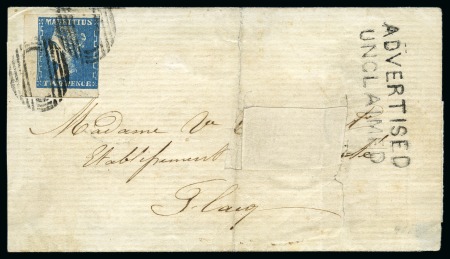 MAURITIUS
TWO PENCE
ADVERTISED
UNCLAIMED
Madame Vᵉ
Etablissement
Flacq